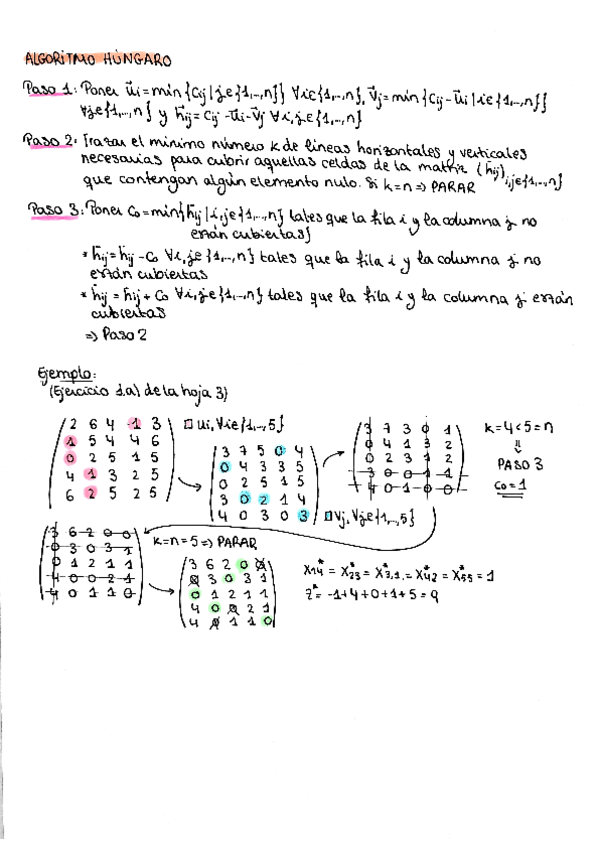 ALGORITMO HÚNGARO
Paso 1: Poner ũi = min {cij | j∈{1,...,n}} ∀i∈{1,...,n}, ṽj = min {cij - ũi | i∈{1,...,n}}
∀j∈{1,...,n} y h̃ij = cij - ũi - ṽj ∀i,j∈{1,...,n}
Paso 2: Trazar el mínimo número k de líneas horizontales y verticales
necesarias para cubrir aquellas celdas de la matriz (h̃ij)i,j∈{1,...,n}
que contengan algún elemento nulo. Si k=n => PARAR
Paso 3: Poner c0 = min{h̃ij | i,j∈{1,...,n} tales que la fila i y la columna j no
están cubiertas}
* h̃ij = h̃ij - c0 ∀i,j∈{1,...,n} tales que la fila i y la columna j no
están cubiertas
* h̃ij = h̃ij + c0 ∀i,j∈{1,...,n} tales que la fila i y la columna j están
cubiertas
=> Paso 2
Ejemplo:
(Ejercicio 1.a) de la hoja 3)
2 6 4 -1 3
1 5 4 4 6
0 2 5 1 5
4 1 3 2 5
6 2 5 2 5
ui, ∀i∈{1,...,5}
3 7 5 0 4
0 4 3 3 5
0 2 5 1 5
3 0 2 1 4
4 0 3 0 3
vj, ∀j∈{1,...,5}
3 7 3 0 1
0 4 1 3 2
0 2 3 1 2
3 0 0 1 1
4 0 1 0 0
k=4<5=n
⇓
PASO 3
c0=1
3 6 2 0 0
0 3 0 3 1
0 1 2 1 1
4 0 0 2 1
4 0 1 1 0
k=n=5 => PARAR
3 6 2 0 0
0 3 0 3 1
0 1 2 1 1
4 0 0 2 1
4 0 1 1 0
x14* = x23* = x31* = x42* = x55* = 1
z* = -1+4+0+1+5 = 9